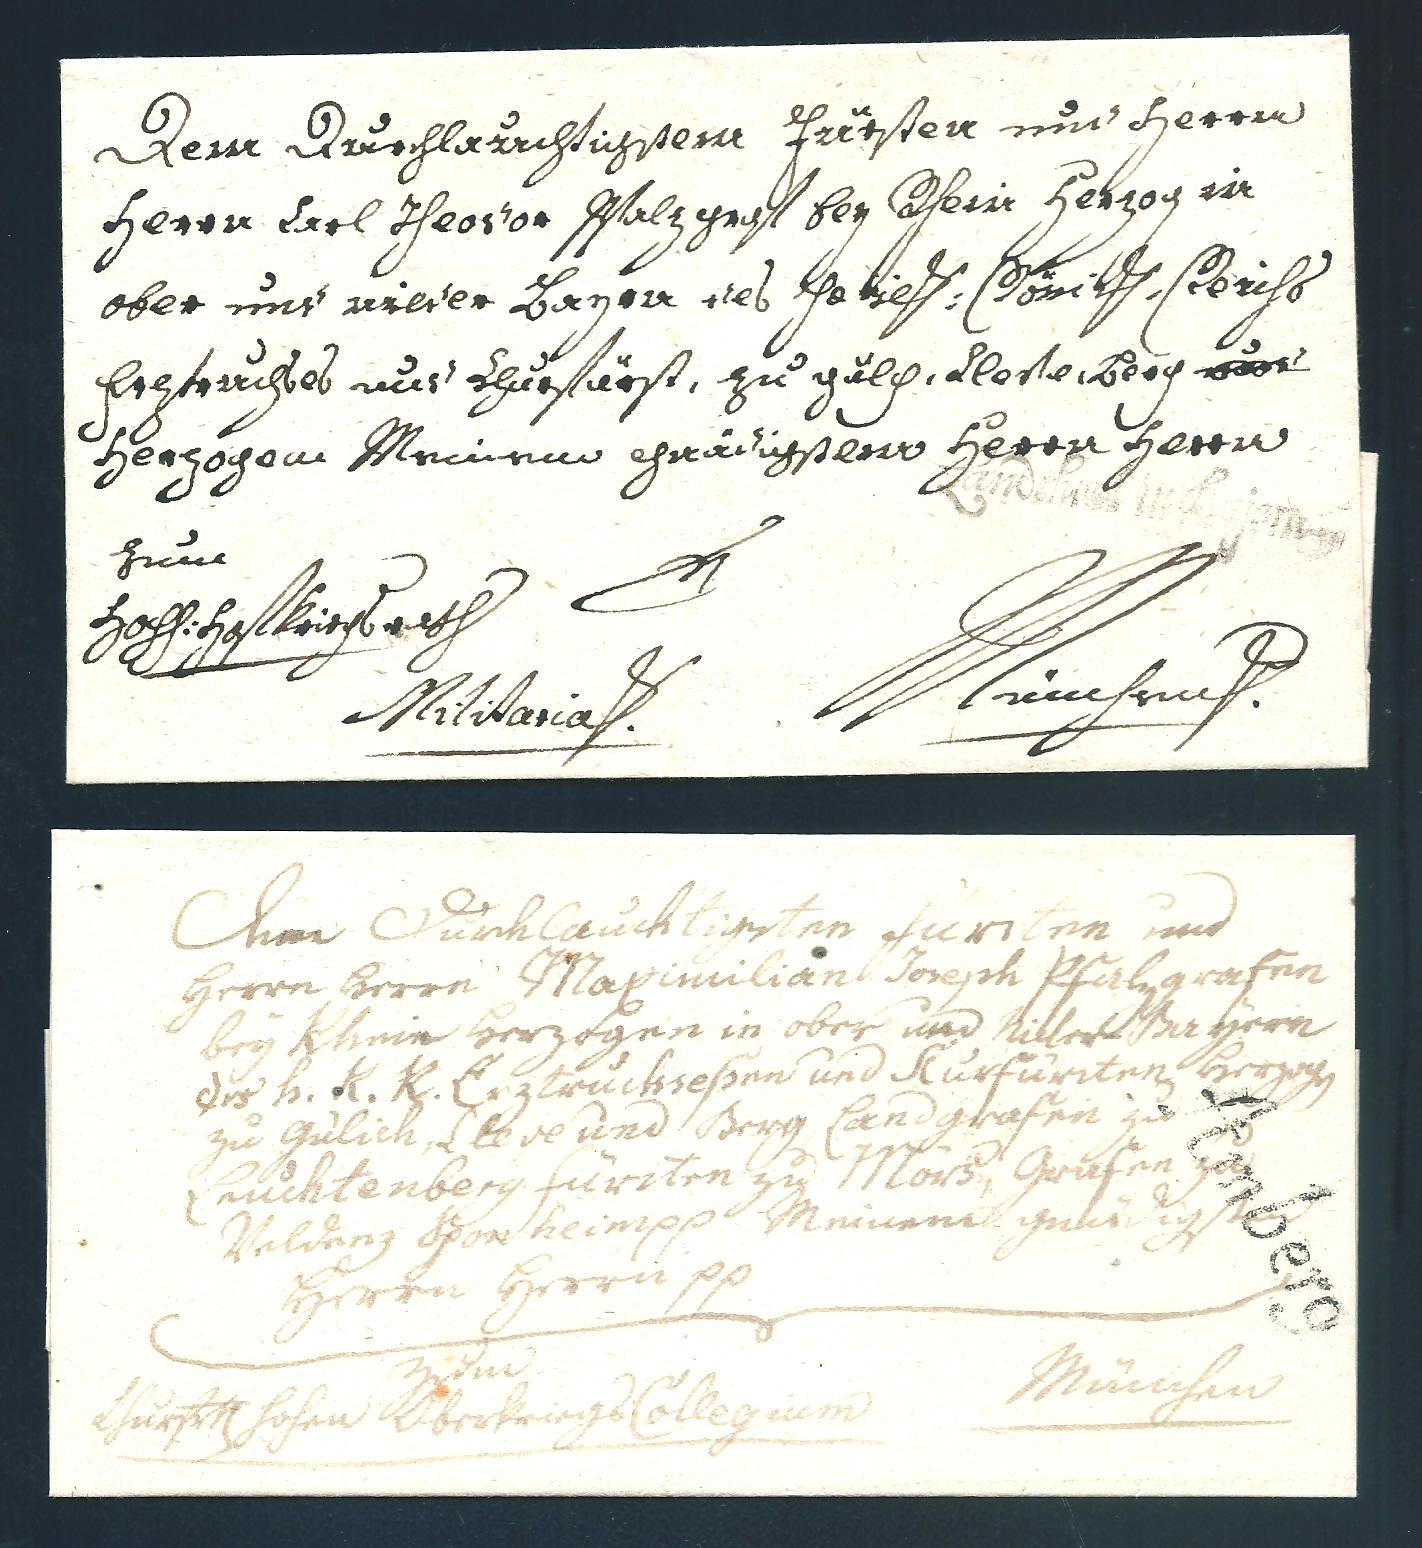 Dem Durchlauchtigstem Fürsten und Herrn
Herrn Carl Theodor Pfalzgraf bey Rhein Herzog in
ober und nieder Bayrn des Reichs
Erztruchses und Churfürst, zu gülch, Cleve, Berg
Herzogem Meinem gnädigstem Herrn Herrn
Landshut in Bajern
zum
Hofkriegsrath
Militaria
München
Dem Durchlauchtigsten Fürsten und
Herrn Herrn Maximilian Joseph Pfalzgrafen
bey Rhein Herzogen in ober und nieder Bayern
des h. R. R. Erztruchseßen und Kurfürsten Herzog
zu Gülich, Cleve und Berg Landgrafen zu
Leuchtenberg Fürsten zu Mörs, Grafen zu
Veldenz Sponheim pp Meinem gnädigst
Herrn Herrn pp
Amberg
zum
hohen Oberkriegs Collegium
München